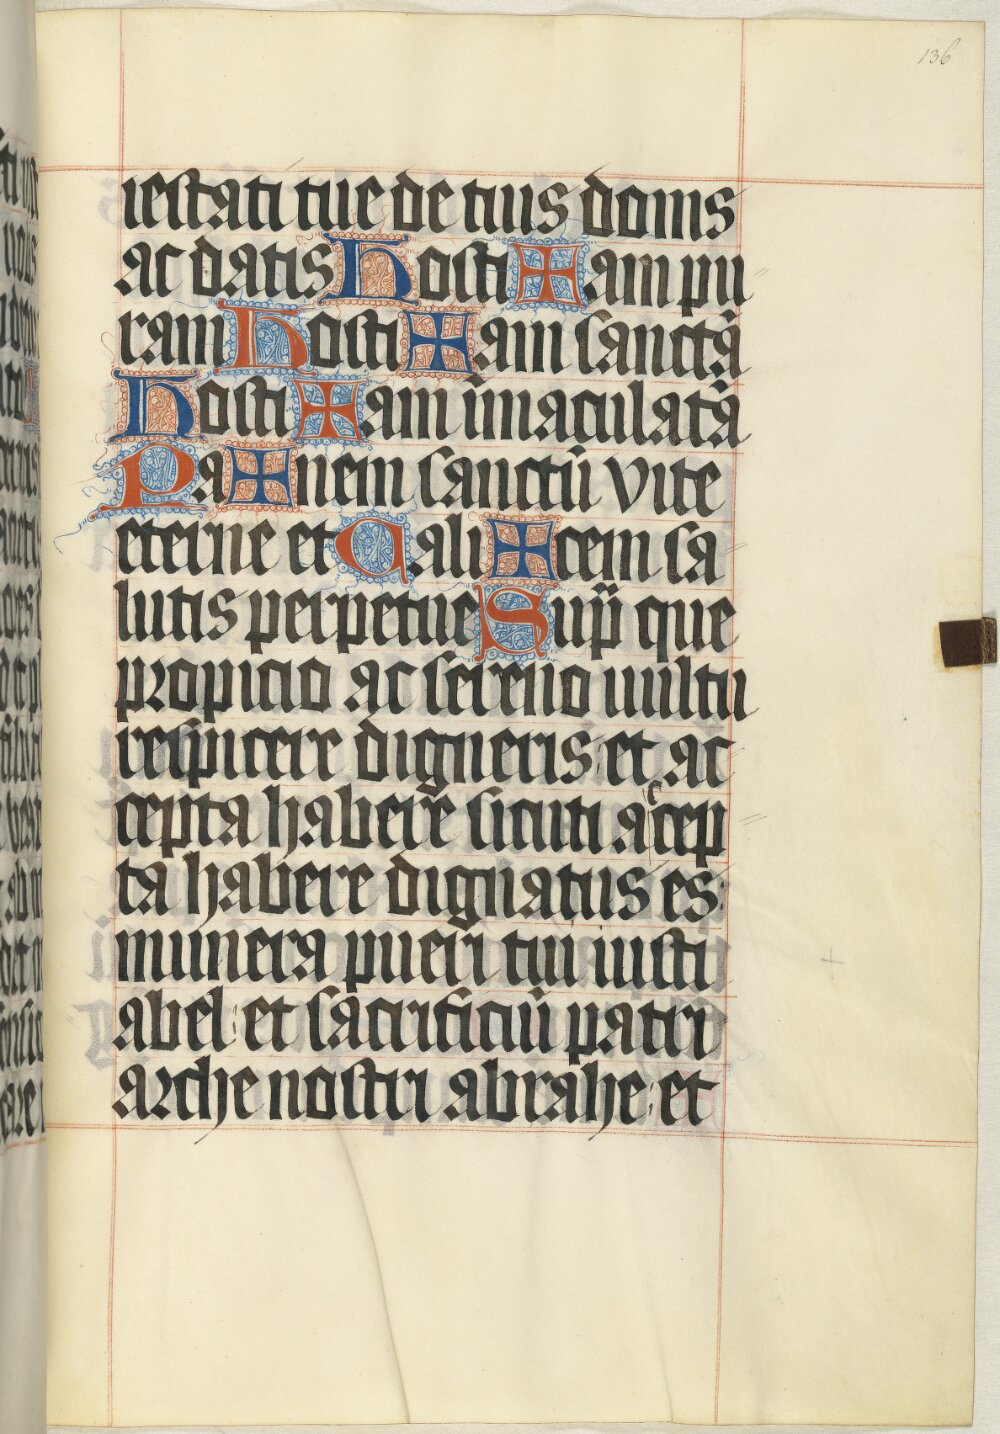 136
iestati tue de tuis donis
ac datis Hosti✠am pu
ram Hosti✠am sanctā
Hosti✠am īmaculatā
Pa✠nem sanctū vite
eterne et Cali✠cem sa
lutis perpetue Sup̄ que
propicio ac sereno uultu
respicere digneris: et ac
cepta habere sicuti accep
ta habere dignatus es:
munera pueri tui iusti
abel: et sacrificiū patri
arche nostri abrahe: et